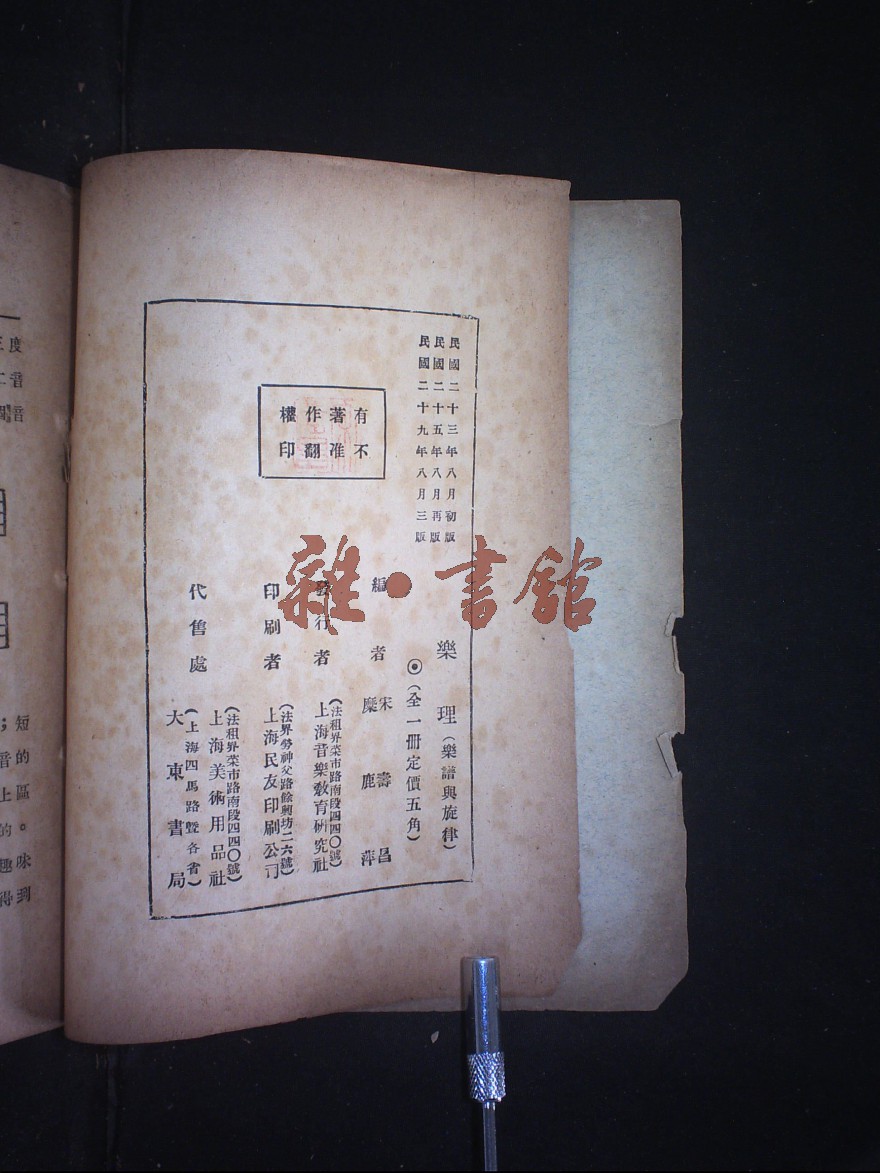 民國二十三年八月初版
民國二十五年八月再版
民國二十九年八月三版
有著作權
不准翻印
樂理（樂譜與旋律）
◉（全一冊定價五角）
編者 宋壽昌
麋鹿萍
發行者 上海音樂教育研究社
（法租界菜市路南段四四〇號）
印刷者 上海民友印刷公司
（法界勞神父路餘興坊二六號）
代售處
上海美術用品社
（法租界菜市路南段四四〇號）
大東書局
（上海四馬路暨各省）
雜·書館
度
音
音
；短
音的
上區
的。
趣味
得到